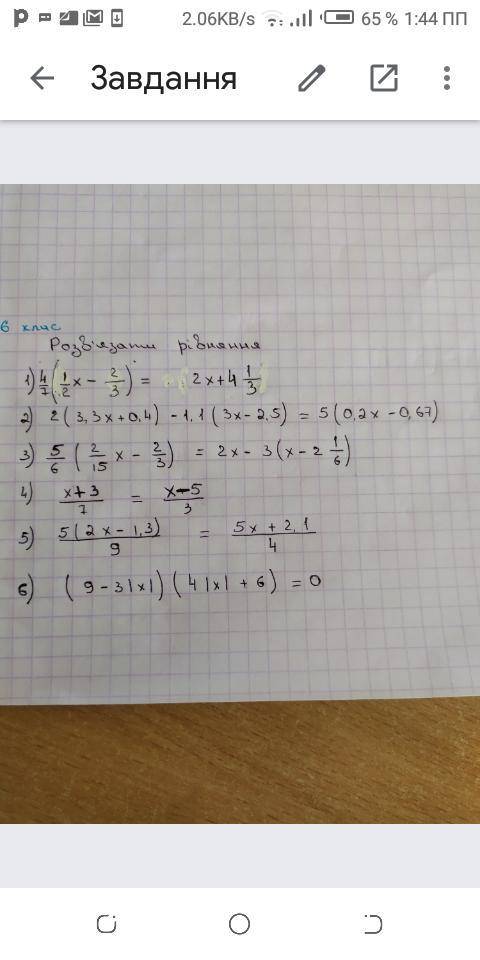 2.06KB/s 65 % 1:44 ПП
Завдання
6 клас
Розв'язати рівняння
1) 4/7(1/2x - 2/3) = 2x+4 1/3
2) 2(3,3x+0,4) - 1,1(3x-2,5) = 5(0,2x-0,67)
3) 5/6 (2/15 x - 2/3) = 2x - 3(x - 2 1/6)
4) x+3/7 = x-5/3
5) 5(2x-1,3)/9 = 5x+2,1/4
6) (9-3|x|)(4|x|+6) = 0